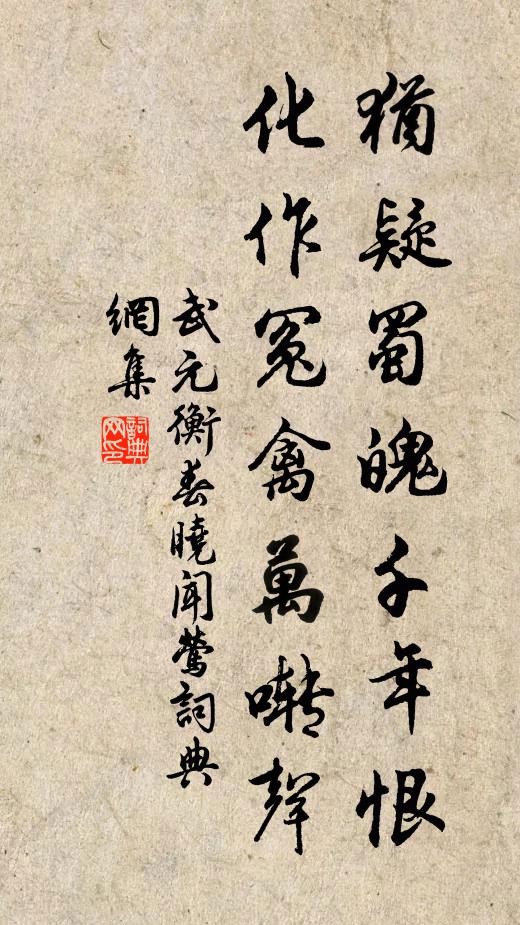 猶疑蜀魄千年恨
化作冤禽萬囀聲
武元衡春曉聞鶯詞典
網集
詞典
网印